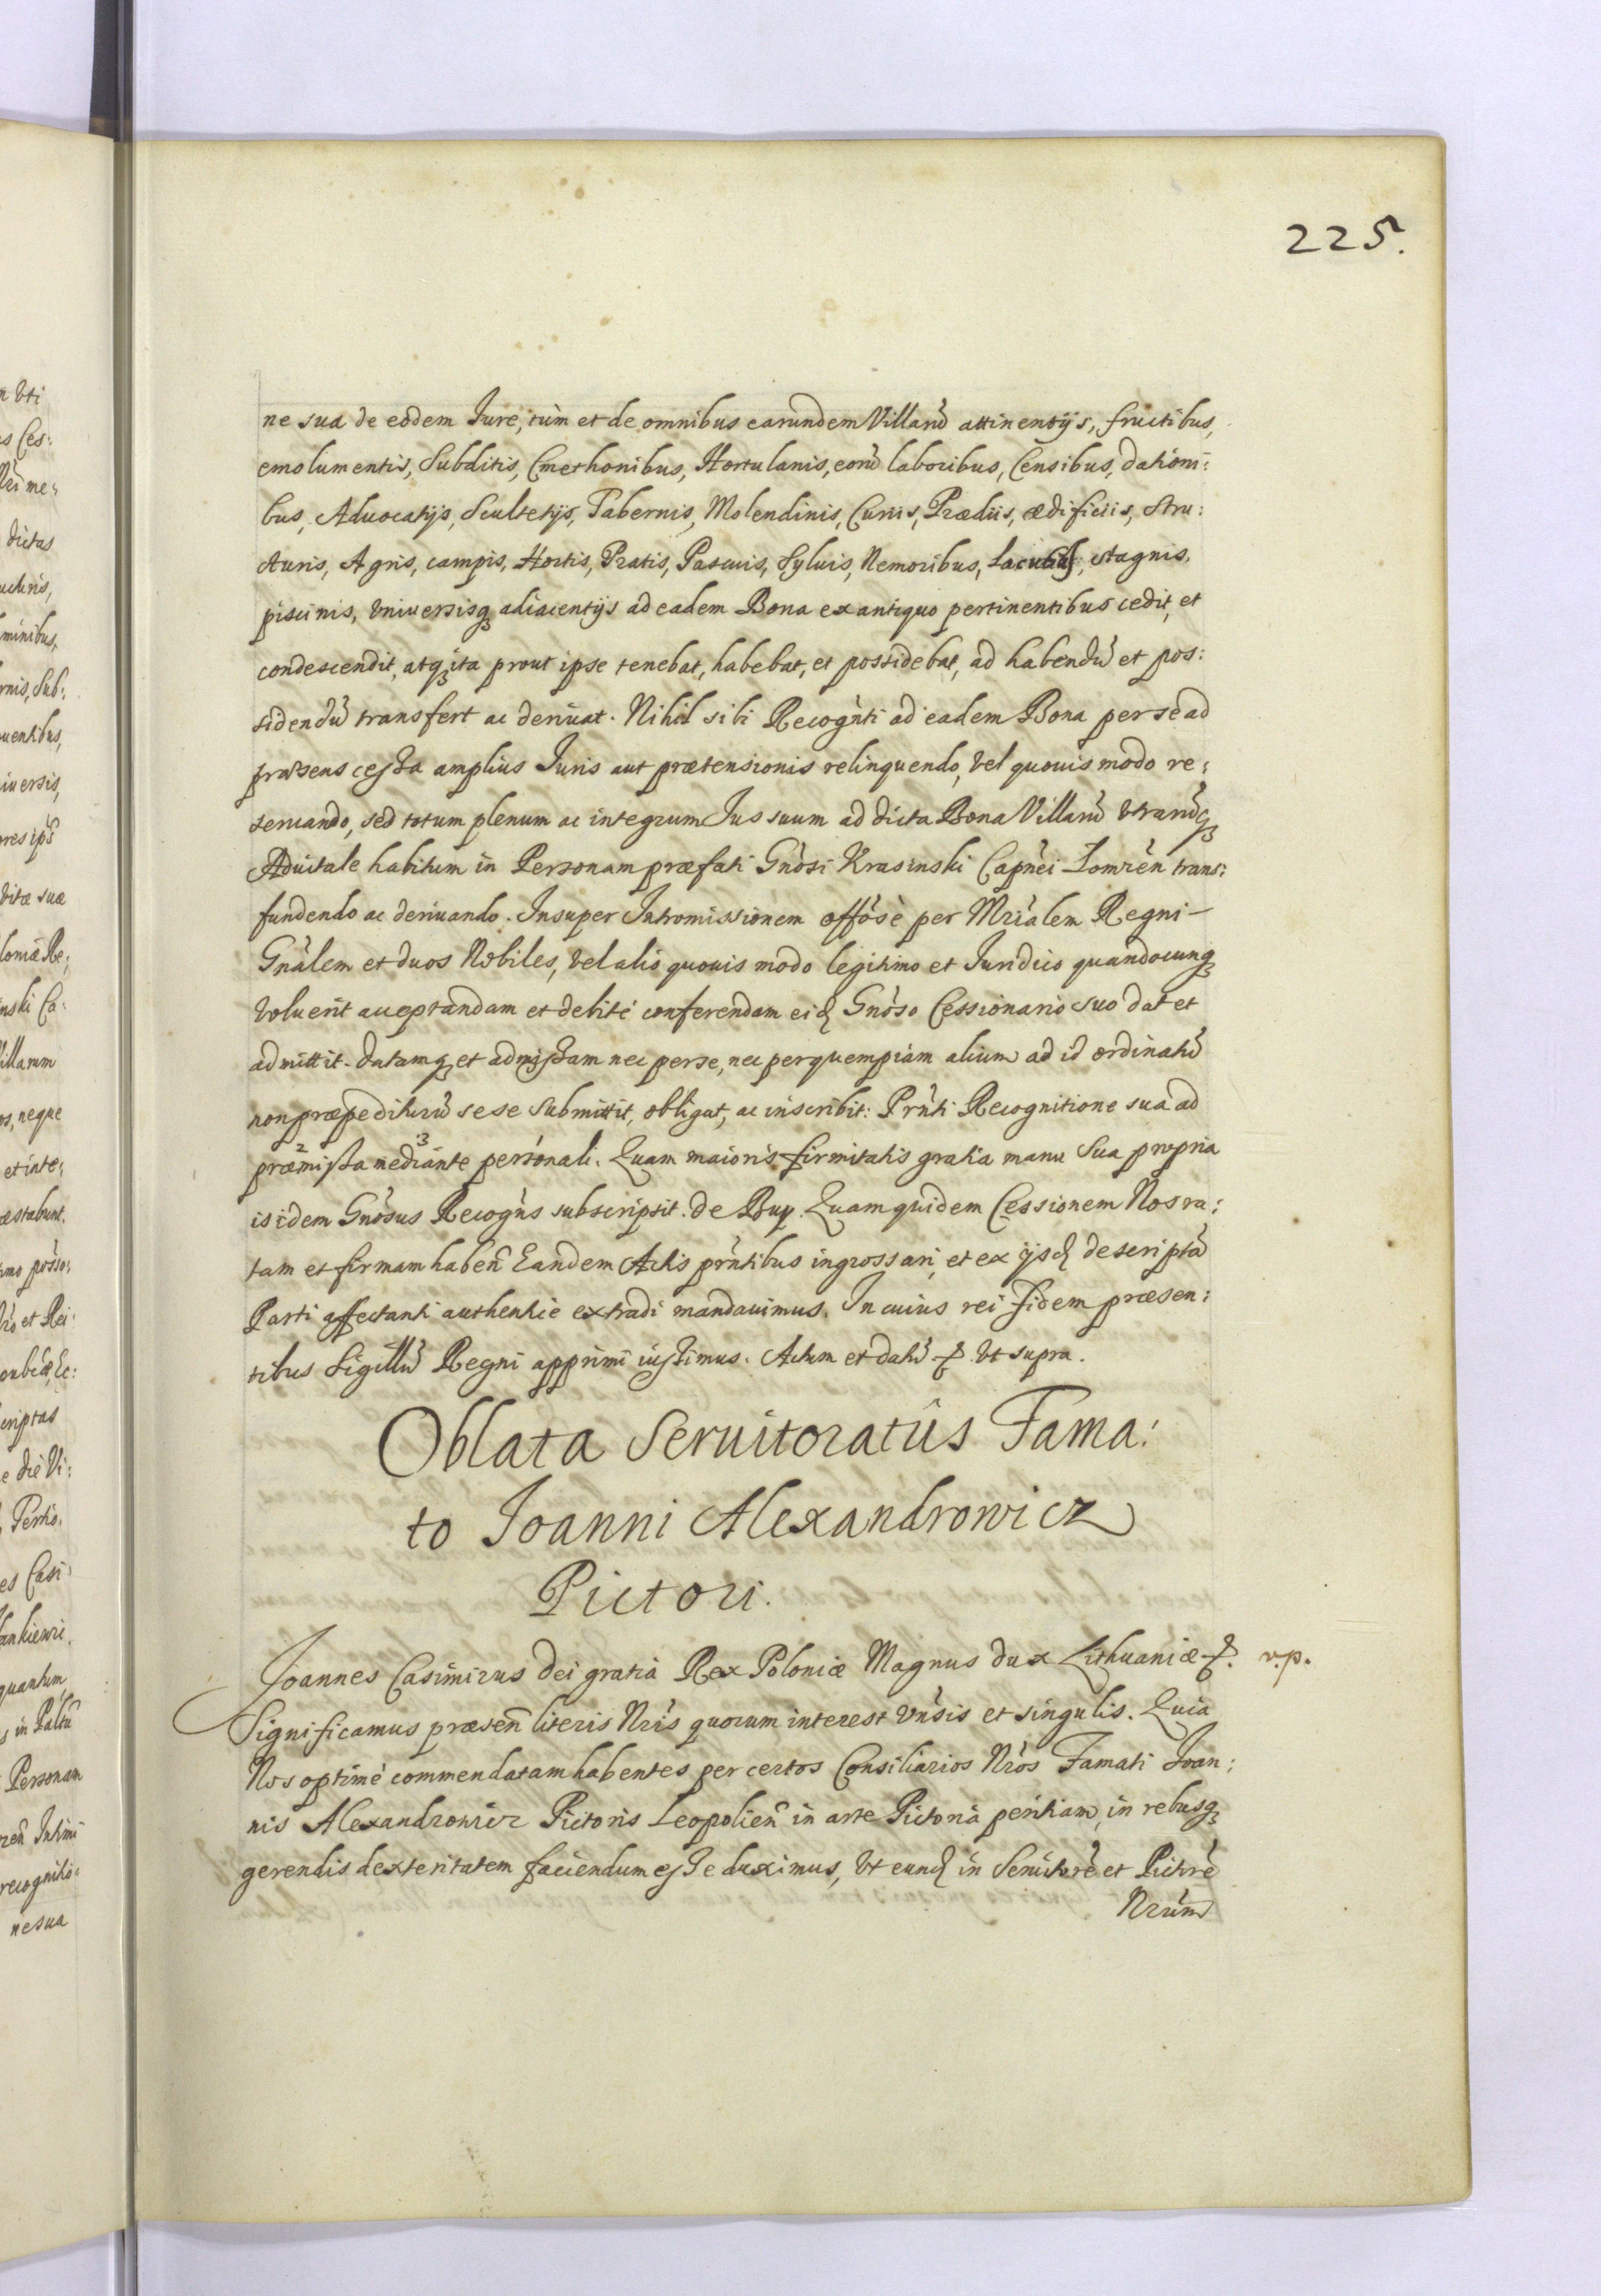 225.
ne sua de eodem Jure, tùm et de omnibus earundem Villarū attinentijs, fructibus,
emolumentis, Subditis, Cmethonibus, Hortulanis, eorū laboribus, Censibus, dationi:
bus, Aduocatijs, Scultetijs, Tabernis, Molendinis, Curiis, Prædiis, ædificiis, stru:
cturis, Agris, campis, Hortis, Pratis, Pascuis, Syluis, Nemoribus, Lacubus, stagnis,
piscinis, vniuersisq3 adiacentijs ad eadem Bona ex antiquo pertinentibus cedit, et
condescendit, atq3 ita prout ipse tenebat, habebat, et possidebat, ad habendū et pos:
sidendū transfert ac deriuat. Nihil sibi Recogñti ad eadem Bona per se ad
præsens cessa amplius Juris aut prætensionis relinquendo, vel quouis modo re:
seruando, sed totum plenum ac integrum Jus suum ad dicta Bona Villarū vtrarūq3
Aduitale habitum in Personam præfati Gnõsi Krasinski Capñei Lomzeñ trans:
fundendo ac deriuando. Insuper Intromissionem offõsè per Mrĩalem Regni
Gnãlem et duos Nobiles, vel alio quouis modo legitimo et Juridico quandocunq3
voluerit acceptandam et debitè conferendam eid Gnõso Cessionario suo dat et
admittit. datamq3 et admissam nec per se, nec per quempiam alium ad id ordinatū
non præpediturū sese submittit, obligat, ac inscribit: Prñti Recognitione sua ad
præmissa mediante personali. Quam maioris firmitatis gratia manu sua propria
is idem Gnõsus Recogñs subscripsit. de Buy. Quam quidem Cessionem Nos ra:
tam et firmam habeñ Eandem Actis prñtibus ingrossari, et ex ijsd descriptā
Parti affectanti authentice extradi mandauimus. In cuius rei fidem præsen:
tibus Sigillū Regni apprimi iussimus. Actum et datū &. vt supra.
Oblata Seruitoratûs Fama:
to Joanni Alexandrowicz
Pictori.
Joannes Casimirus Dei gratia Rex Poloniæ Magnus dux Lithuaniæ &. v.p.
Significamus præseñ literis Nrĩs quorum interest vñsis et singulis. Quia
Nos optimè commendatam habentes per certos Consiliarios Nrõs Famati Joan:
nis Alexandrowicz Pictoris Leopolieñ in arte Pictoria peritiam, in rebusq3
gerendis dexteritatem faciendum esse duximus, vt eund in Seruitorẽ et Pictorẽ
Nrũm